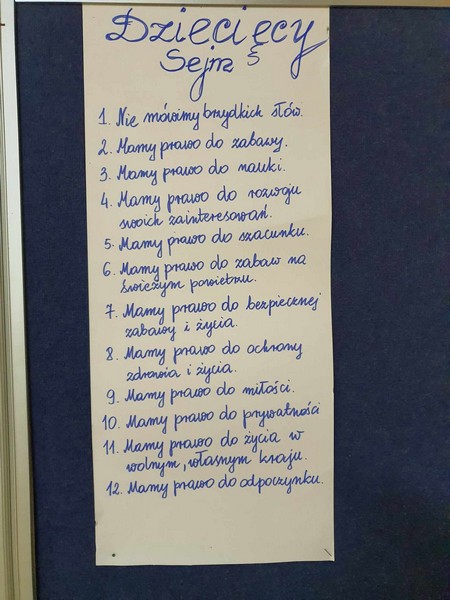 Dziecięcy
Sejm
1. Nie mówimy brzydkich słów.
2. Mamy prawo do zabawy.
3. Mamy prawo do nauki.
4. Mamy prawo do rozwoju
swoich zainteresowań.
5. Mamy prawo do szacunku.
6. Mamy prawo do zabaw na
świeżym powietrzu.
7. Mamy prawo do bezpiecznej
zabawy i życia.
8. Mamy prawo do ochrony
zdrowia i życia.
9. Mamy prawo do miłości.
10. Mamy prawo do prywatności
11. Mamy prawo do życia w
wolnym, własnym kraju.
12. Mamy prawo do odpoczynku.